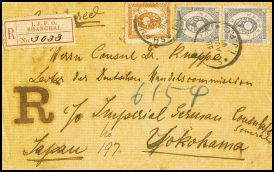 Registered
I.J.P.O.
SHANGHAI.
R
No. 3033
Herrn Consul Dr. Knappe
Leiter der Deutschen Handelscommission
R
6154
c/o Imperial German Consulate
General
Yokohama
Japan 197.